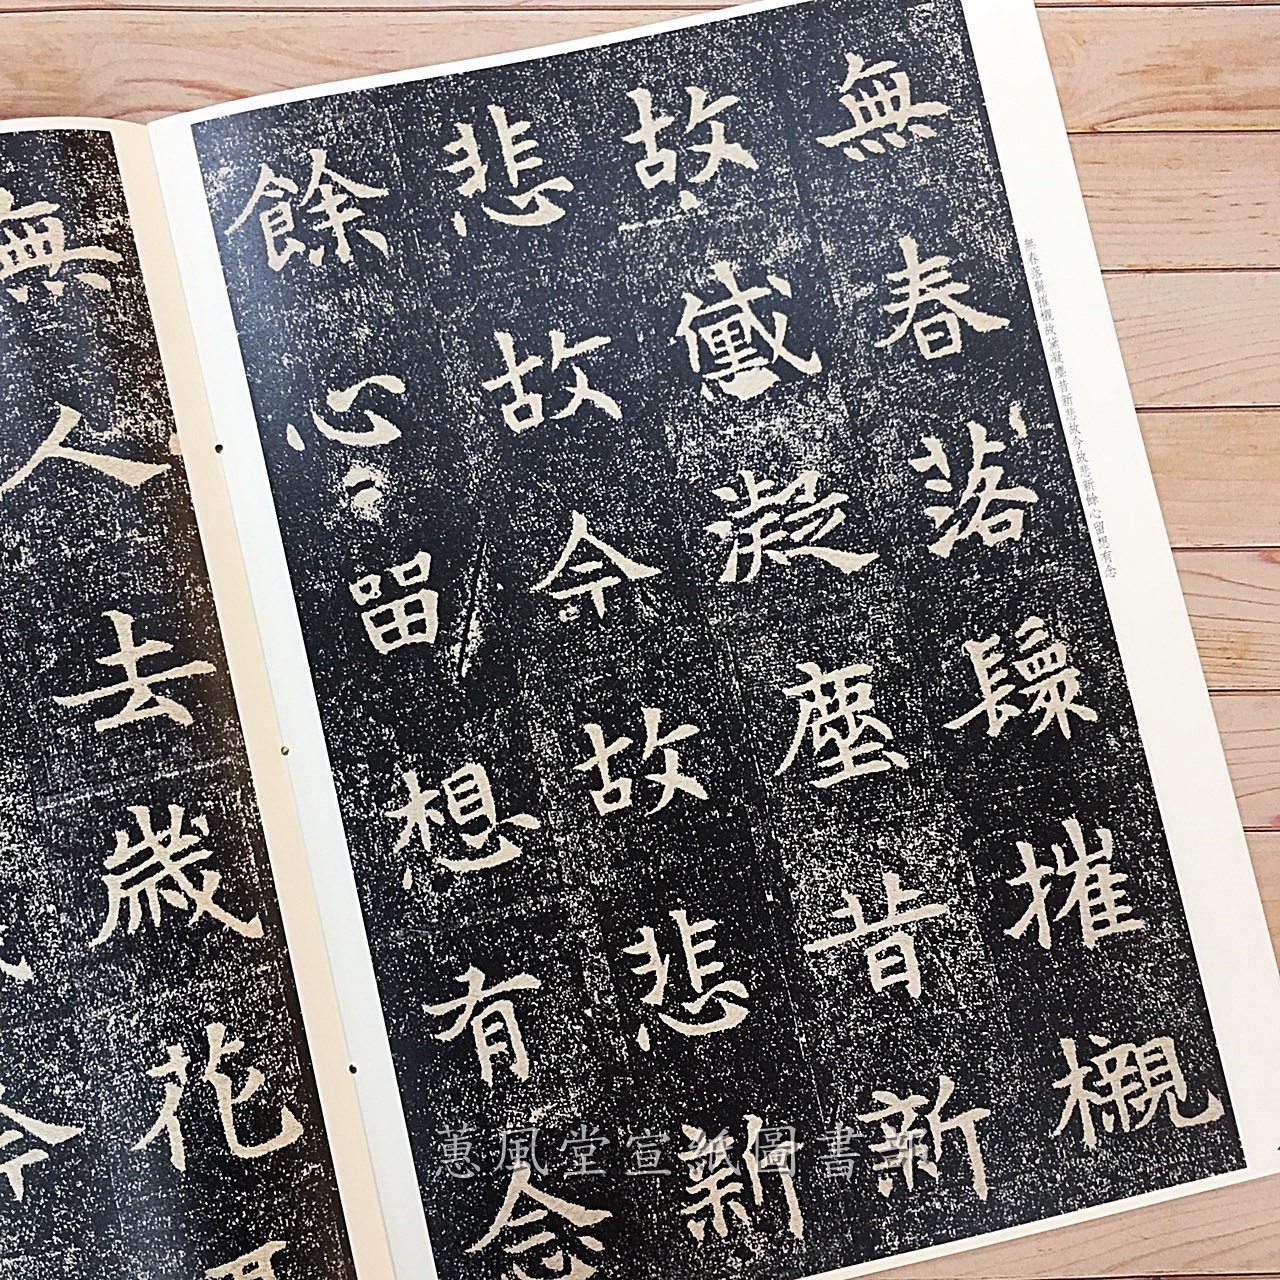 無春落鬤摧櫬故黛凝塵昔新悲故今故悲新餘心留想有念
無春落鬤摧櫬
故黛凝塵昔新
悲故今故悲新
餘心留想有念
無人去歲花
今
蕙風堂宣紙圖書部